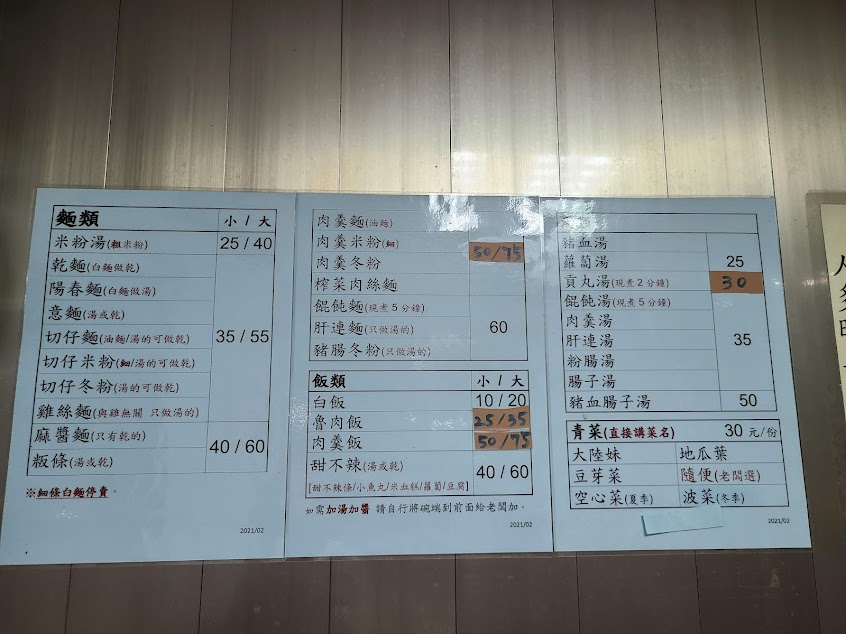 麵類 小 / 大
米粉湯(粗米粉) 25 / 40
乾麵(白麵做乾)
陽春麵(白麵做湯)
意麵(湯或乾)
切仔麵(油麵/湯的可做乾) 35 / 55
切仔米粉(細/湯的可做乾)
切仔冬粉(湯的可做乾)
雞絲麵(與雞無關 只做湯的)
麻醬麵(只有乾的) 40 / 60
粄條(湯或乾)
※細條白麵停賣。
2021/02
肉羹麵(油麵)
肉羹米粉(細) 50/75
肉羹冬粉
榨菜肉絲麵
餛飩麵(現煮5分鐘)
肝連麵(只做湯的) 60
豬腸冬粉(只做湯的)
飯類 小 / 大
白飯 10 / 20
魯肉飯 25/35
肉羹飯 50/75
甜不辣(湯或乾) 40 / 60
[甜不辣條/小魚丸/米血糕/蘿蔔/豆腐]
如需加湯加醬 請自行將碗端到前面給老闆加。
2021/02
豬血湯
蘿蔔湯 25
貢丸湯(現煮2分鐘) 30
餛飩湯(現煮5分鐘)
肉羹湯
肝連湯 35
粉腸湯
腸子湯
豬血腸子湯 50
青菜(直接講菜名) 30 元/份
大陸妹 地瓜葉
豆芽菜 隨便(老闆選)
空心菜(夏季) 波菜(冬季)
2021/02